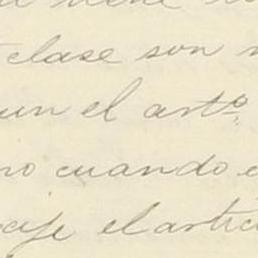 viene
clase son
un el artº
no cuando
el artic